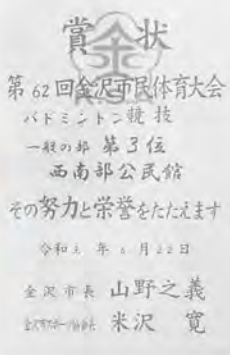 賞状
第62回金沢市民体育大会
バドミントン競技
一般の部 第3位
西南部公民館
その努力と栄誉をたたえます
令和 年 6月22日
金沢市長 山野之義
米沢 寛